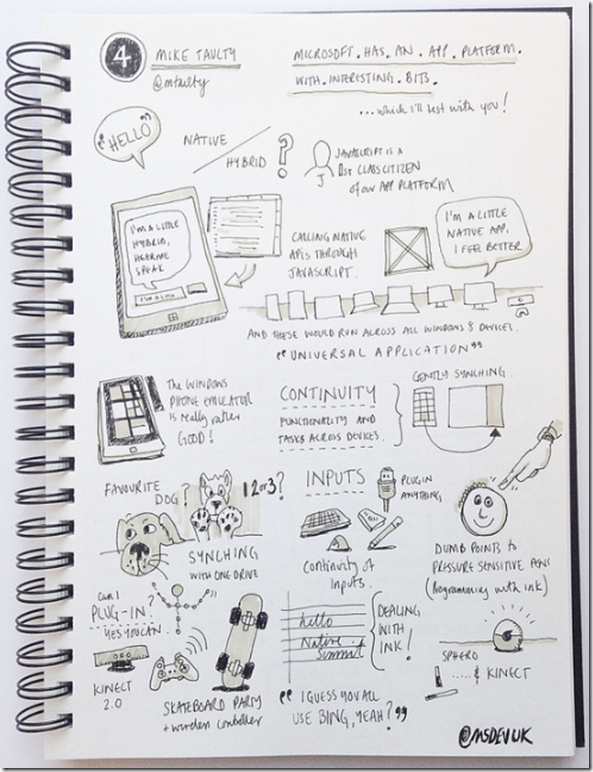 4
MIKE TAULTY
@mtaulty
MICROSOFT. HAS. AN. APP. PLATFORM.
WITH. INTERESTING. BITS.
...which I'll test with you!
"HELLO"
NATIVE
HYBRID
?
J
JAVASCRIPT IS A
1st CLASS CITIZEN
of our APP PLATFORM
I'M A LITTLE
HYBRID,
HEAR ME
SPEAK
CALLING NATIVE
APIs THROUGH
JAVASCRIPT.
I'M A LITTLE
NATIVE APP,
I FEEL BETTER
AND THESE WOULD RUN ACROSS ALL WINDOWS 8 DEVICES.
"UNIVERSAL APPLICATION"
THE WINDOWS
PHONE EMULATOR
is REALLY rather
GOOD!
CONTINUITY
FUNCTIONALITY AND
TASKS ACROSS DEVICES.
GENTLY SYNCHING.
FAVOURITE
DOG?
1 2 or 3?
SYNCHING
WITH ONE DRIVE
INPUTS
PLUGIN
ANYTHING
Continuity of
Inputs.
DUMB POINTS to
PRESSURE SENSITIVE PENS
(Programming with ink)
Can I
PLUG-IN?
YES YOU CAN.
KINECT
2.0
SKATEBOARD PARTY
+ wireless controller
hello
Native
Summit
DEALING
WITH
INK!
"I GUESS YOU ALL
USE BING, YEAH?"
SPHERO
..... & KINECT
@MSDEVUK